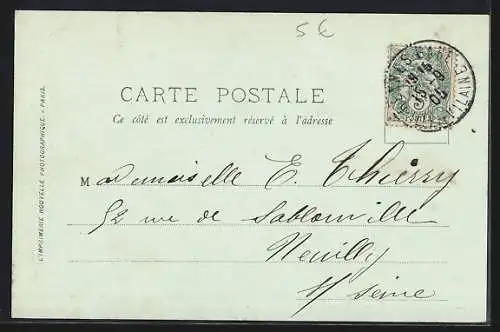 5€
CARTE POSTALE
Ce côté est exclusivement réservé à l'adresse
Mademoiselle E. Thierry
52 rue de Sablonville
Neuilly
s/ Seine
L'IMPRIMERIE NOUVELLE PHOTOGRAPHIQUE - PARIS.